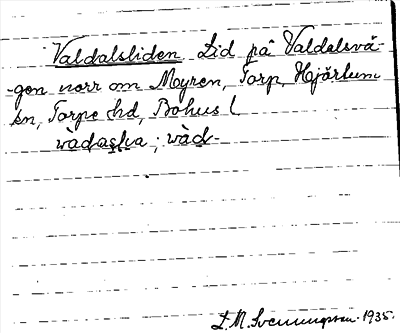 Valdalsliden Lid på Valdalsvä-
-gen norr om Myren, Torp, Hjärtum
sn, Torpe hd, Bohus l.
vàdaska; vàd-
L.M. Svenungsson. 1935.